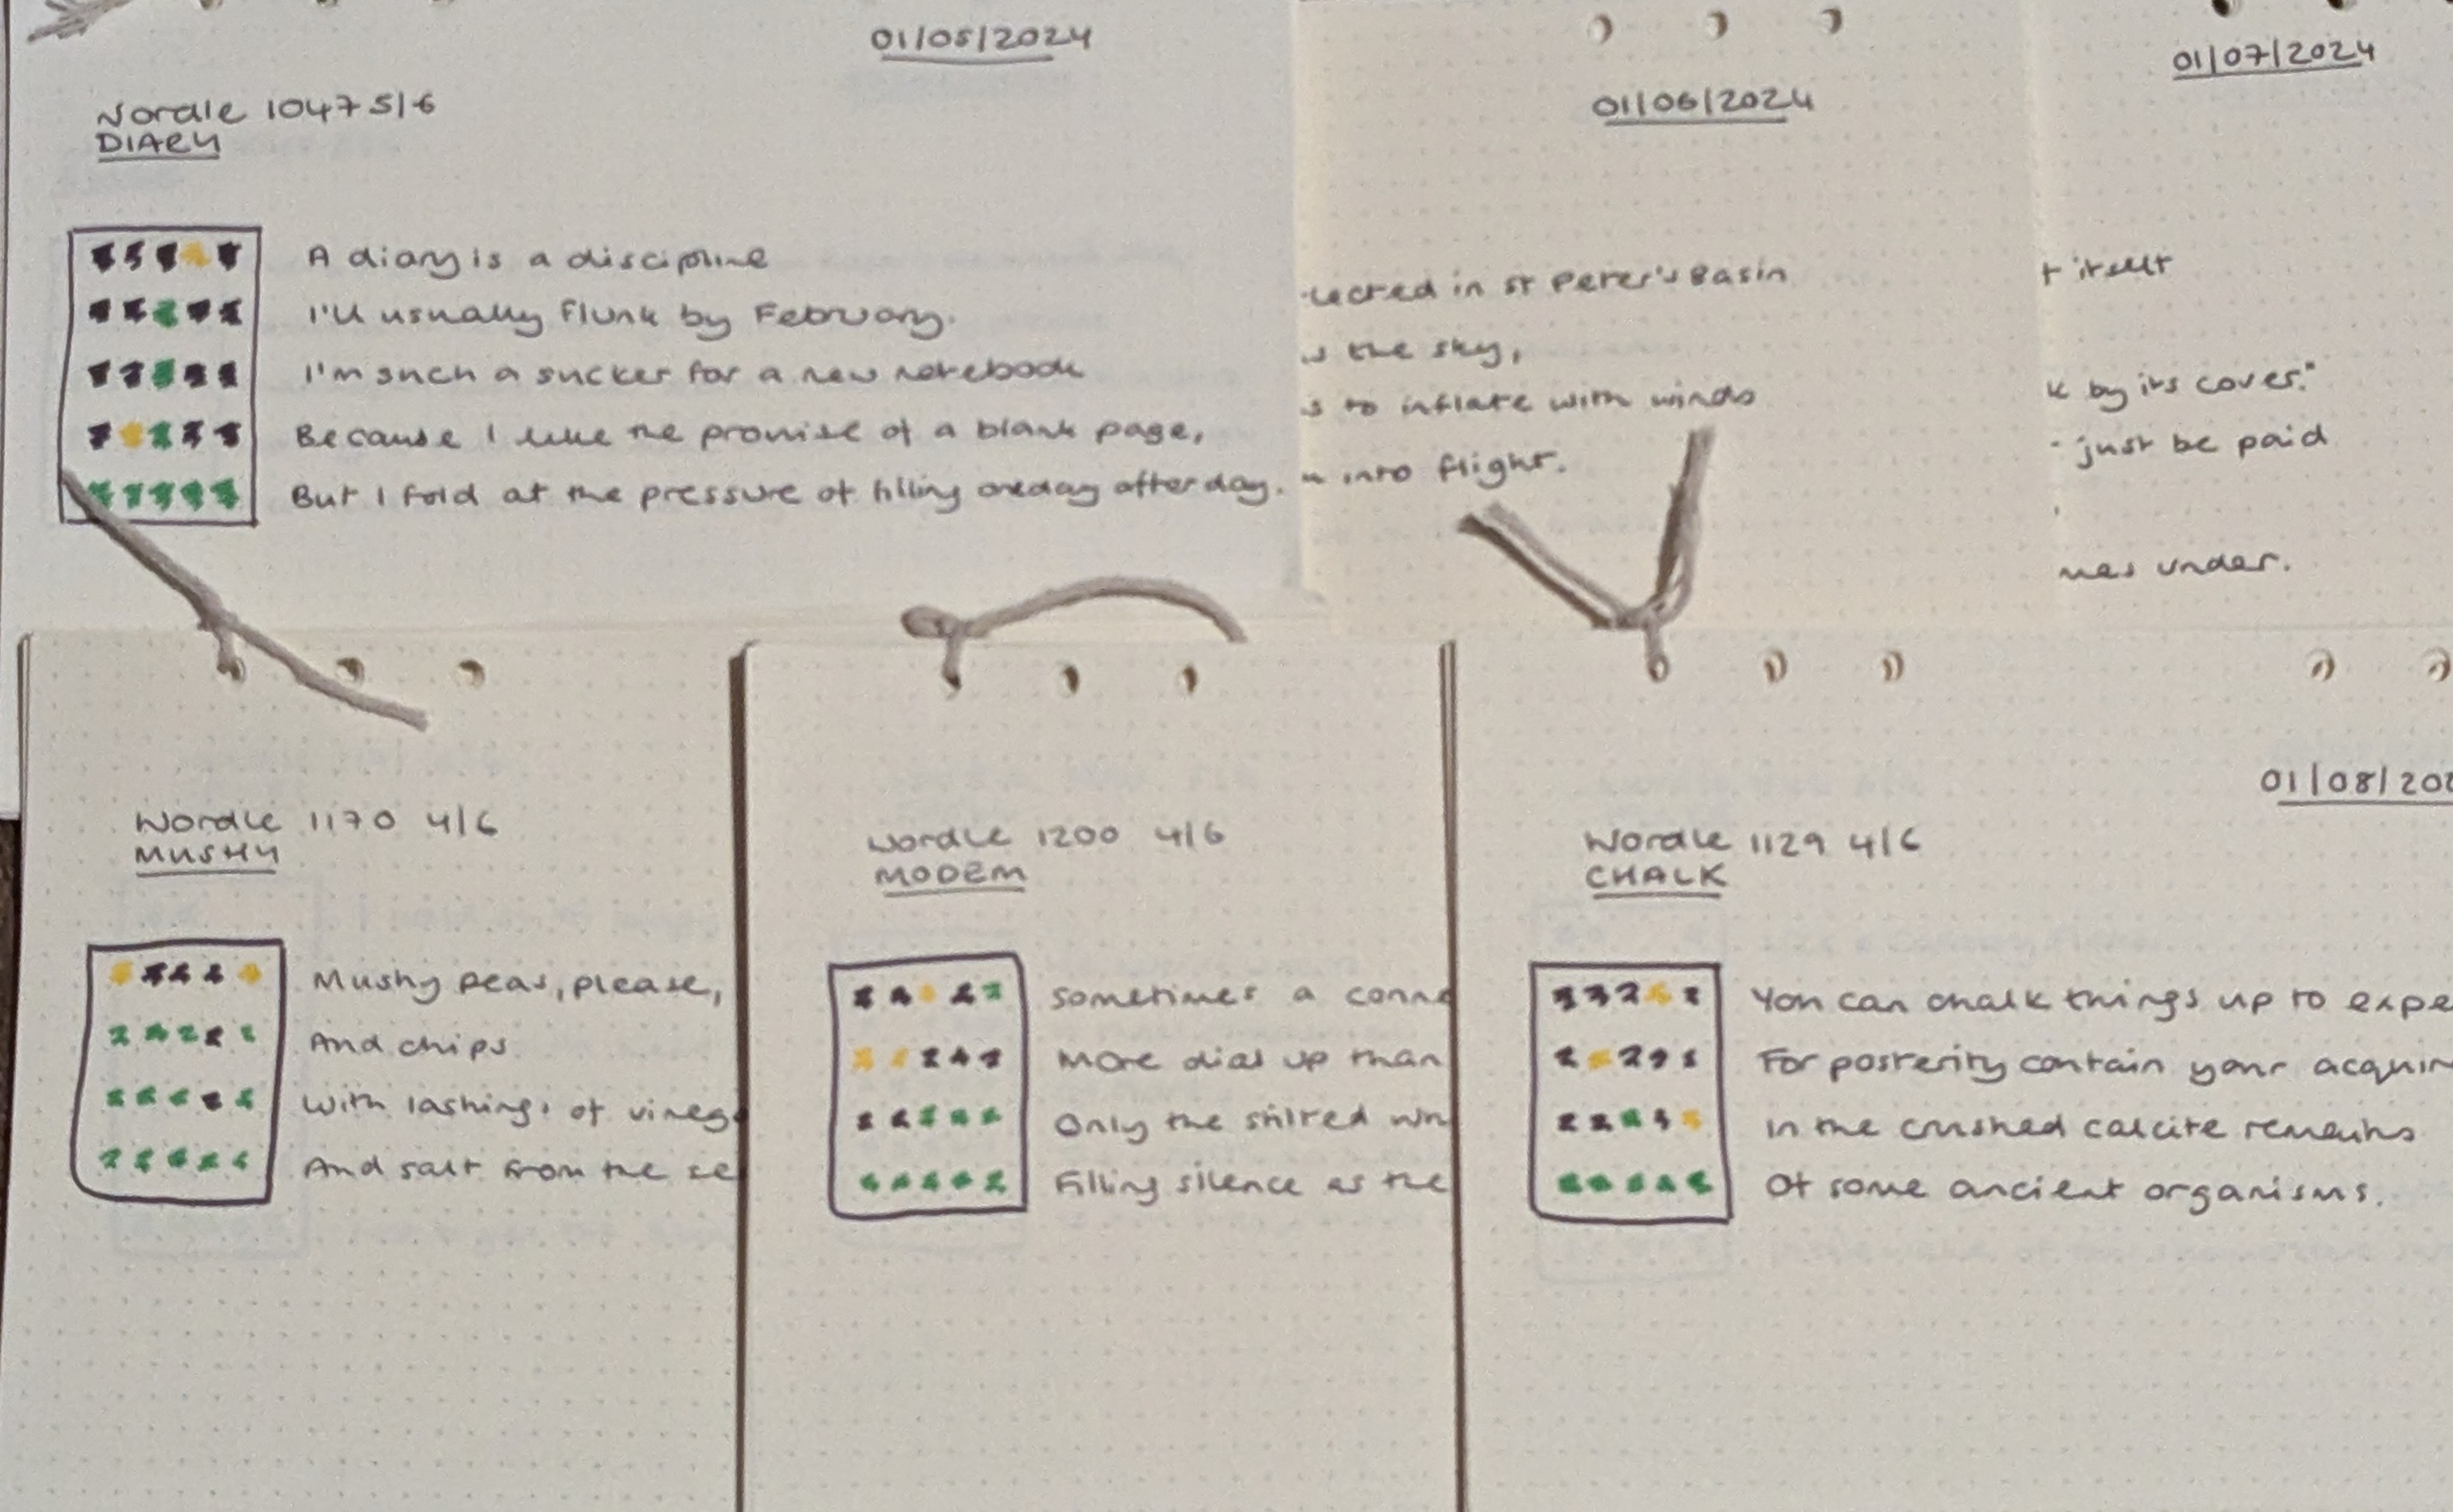 01/05/2024
Wordle 1047 5/6
DIARY
A diary is a discipline
I'll usually flunk by February.
I'm such a sucker for a new notebook
Because I like the promise of a blank page,
But I fold at the pressure of filling one day after day.
01/06/2024
lected in St Peter's Basin
s the sky,
s to inflate with winds
into flight.
01/07/2024
t itself
k by its cover."
just be paid
mes under.
Wordle 1170 4/6
MUSHY
Mushy peas, please,
And chips
With lashings of vineg
And salt from the se
Wordle 1200 4/6
MODEM
Sometimes a conne
More dial up than
Only the stilted
Filling silence as the
01/08/202
Wordle 1129 4/6
CHALK
You can chalk things up to expe
For posterity contain your acquir
In the crushed calcite remains
Of some ancient organisms.